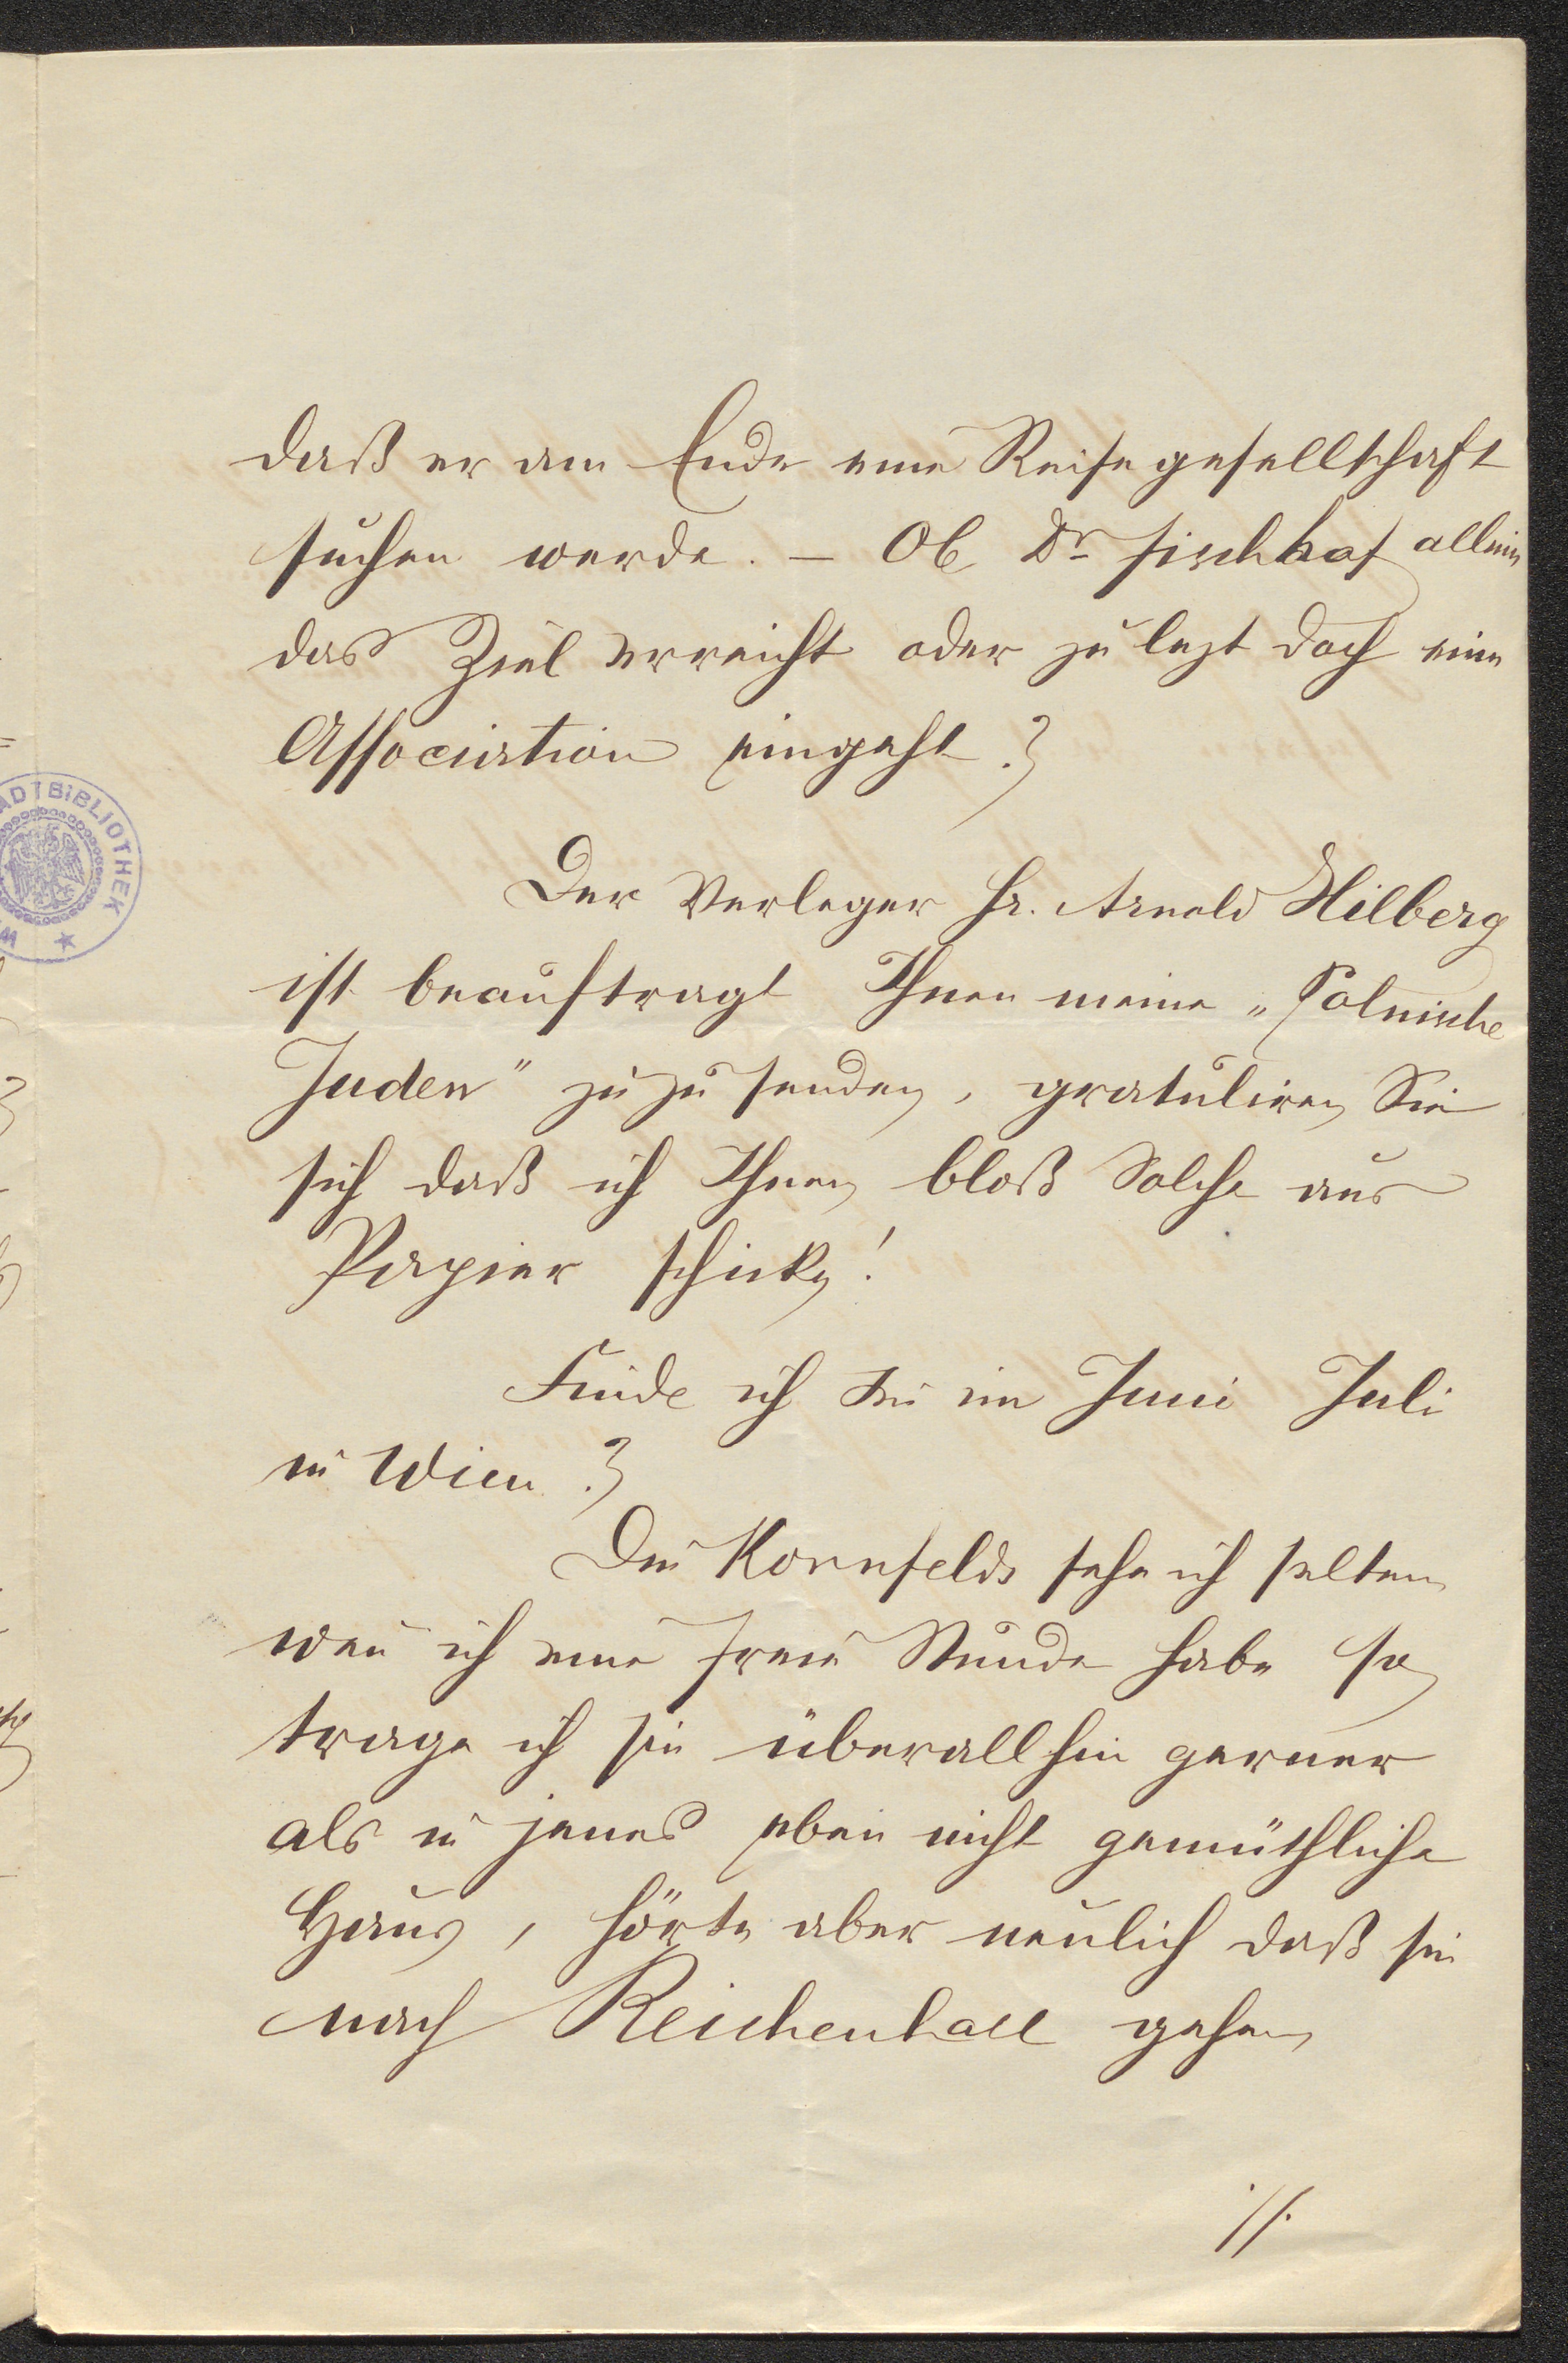 daß er am Ende eine Reisegesellschaft
suchen werde. – Ob Dr Fischhof allein
das Ziel erreicht oder zu lezt doch eine
Association eingeht?
Der Verleger Hr. Arnold Hilberg
ist beauftragt Ihnen meine „Polnische
Juden" zuzusenden, gratuliren Sie
sich daß ich Ihnen bloß Solche aus
Papier schicke!
Finde ich Sie im Juni Juli
in Wien?
Die Kornfelds sehe ich selten
wen̄ ich eine freie Stunde habe so
trage ich sie überallhin gerner
als in jenes eben nicht gemüthliche
Haus, hörte aber neulich daß sie
nach Reichenhall gehen
·/.
STADTBIBLIOTHEK
W